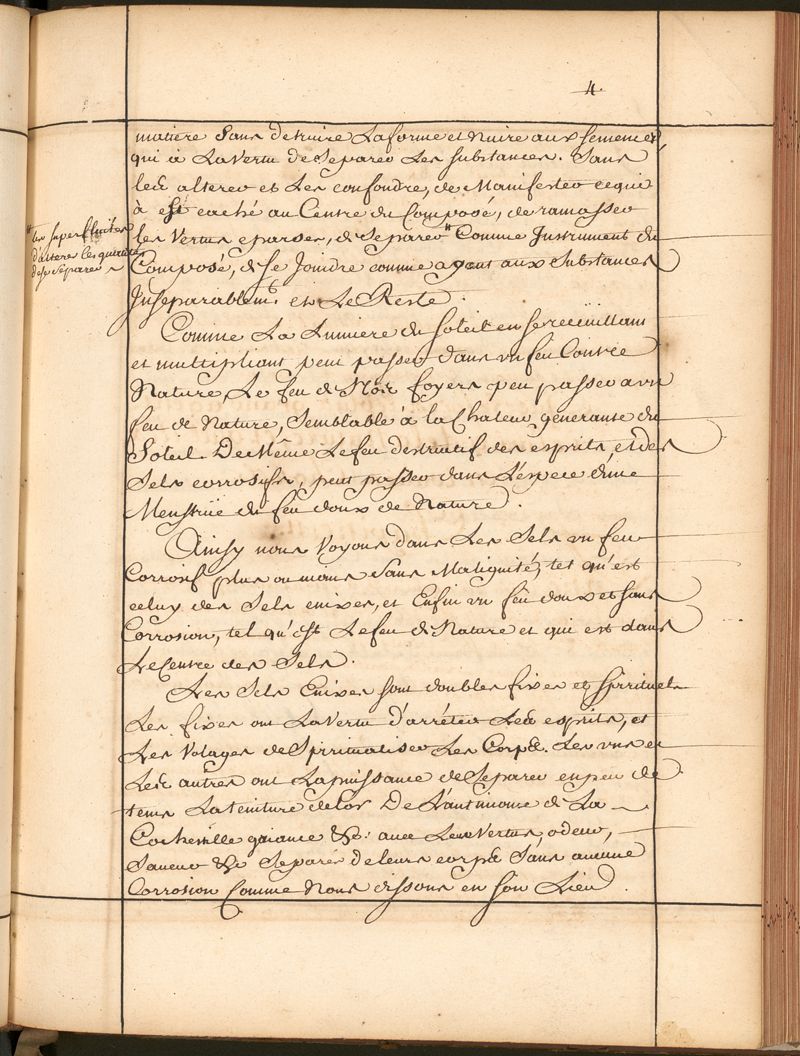 4.
matiere Sans detruire La forme et Nuire aux semences
qui à La Vertu de Separer Les substances. Sans
les alterer et Les confondre, de Manifester ce qui
à est caché au Centre du Composé, de ramasser
les Vertus eparses, de Separer " Comme Instrument du
" les superfluites
d'alterer les
de se Separer
Composé, de se Joindre comme agent aux Substances
Inseparablemt. et Le Reste.
Comme La Lumiere du soleil en se recueillant
et multipliant peut passer dans un feu Contre
Nature, Le feu de Nos foyers peu passer a un
feu de Nature, Semblable à la Chaleur generante du
Soleil. De Même Le feu destructif des esprits et des
Sels corrosifs, peut passer dans L'espece d'une
Menstruë du feu doux de Nature.
Ainsy nous Voyons dans Les Sels un feu
Corrosif plus ou moins Sans Malignité, tel qu'est
celuy des Sels enixes, et Enfin un feu doux et sans
Corrosion, tel qu'est Le feu de Nature et qui est dans
Le Centre des Sels.
Les Sels Enixes sont doubles fixes et spirituels
Les fixes ont La Vertu d'arréter Les esprits, et
Les Volages de Spiritualiser Les Corps. Les uns et
Les autres ont La puissance de Separer en peu de
tems La teinture de l'or De L'antimoine de La
Cochenille gaiance &c: avec Leurs Vertus, odeur,
Saveur &c Separée de leurs corps Sans aucune
Corrosion Comme Nous dissons en son Lieu.